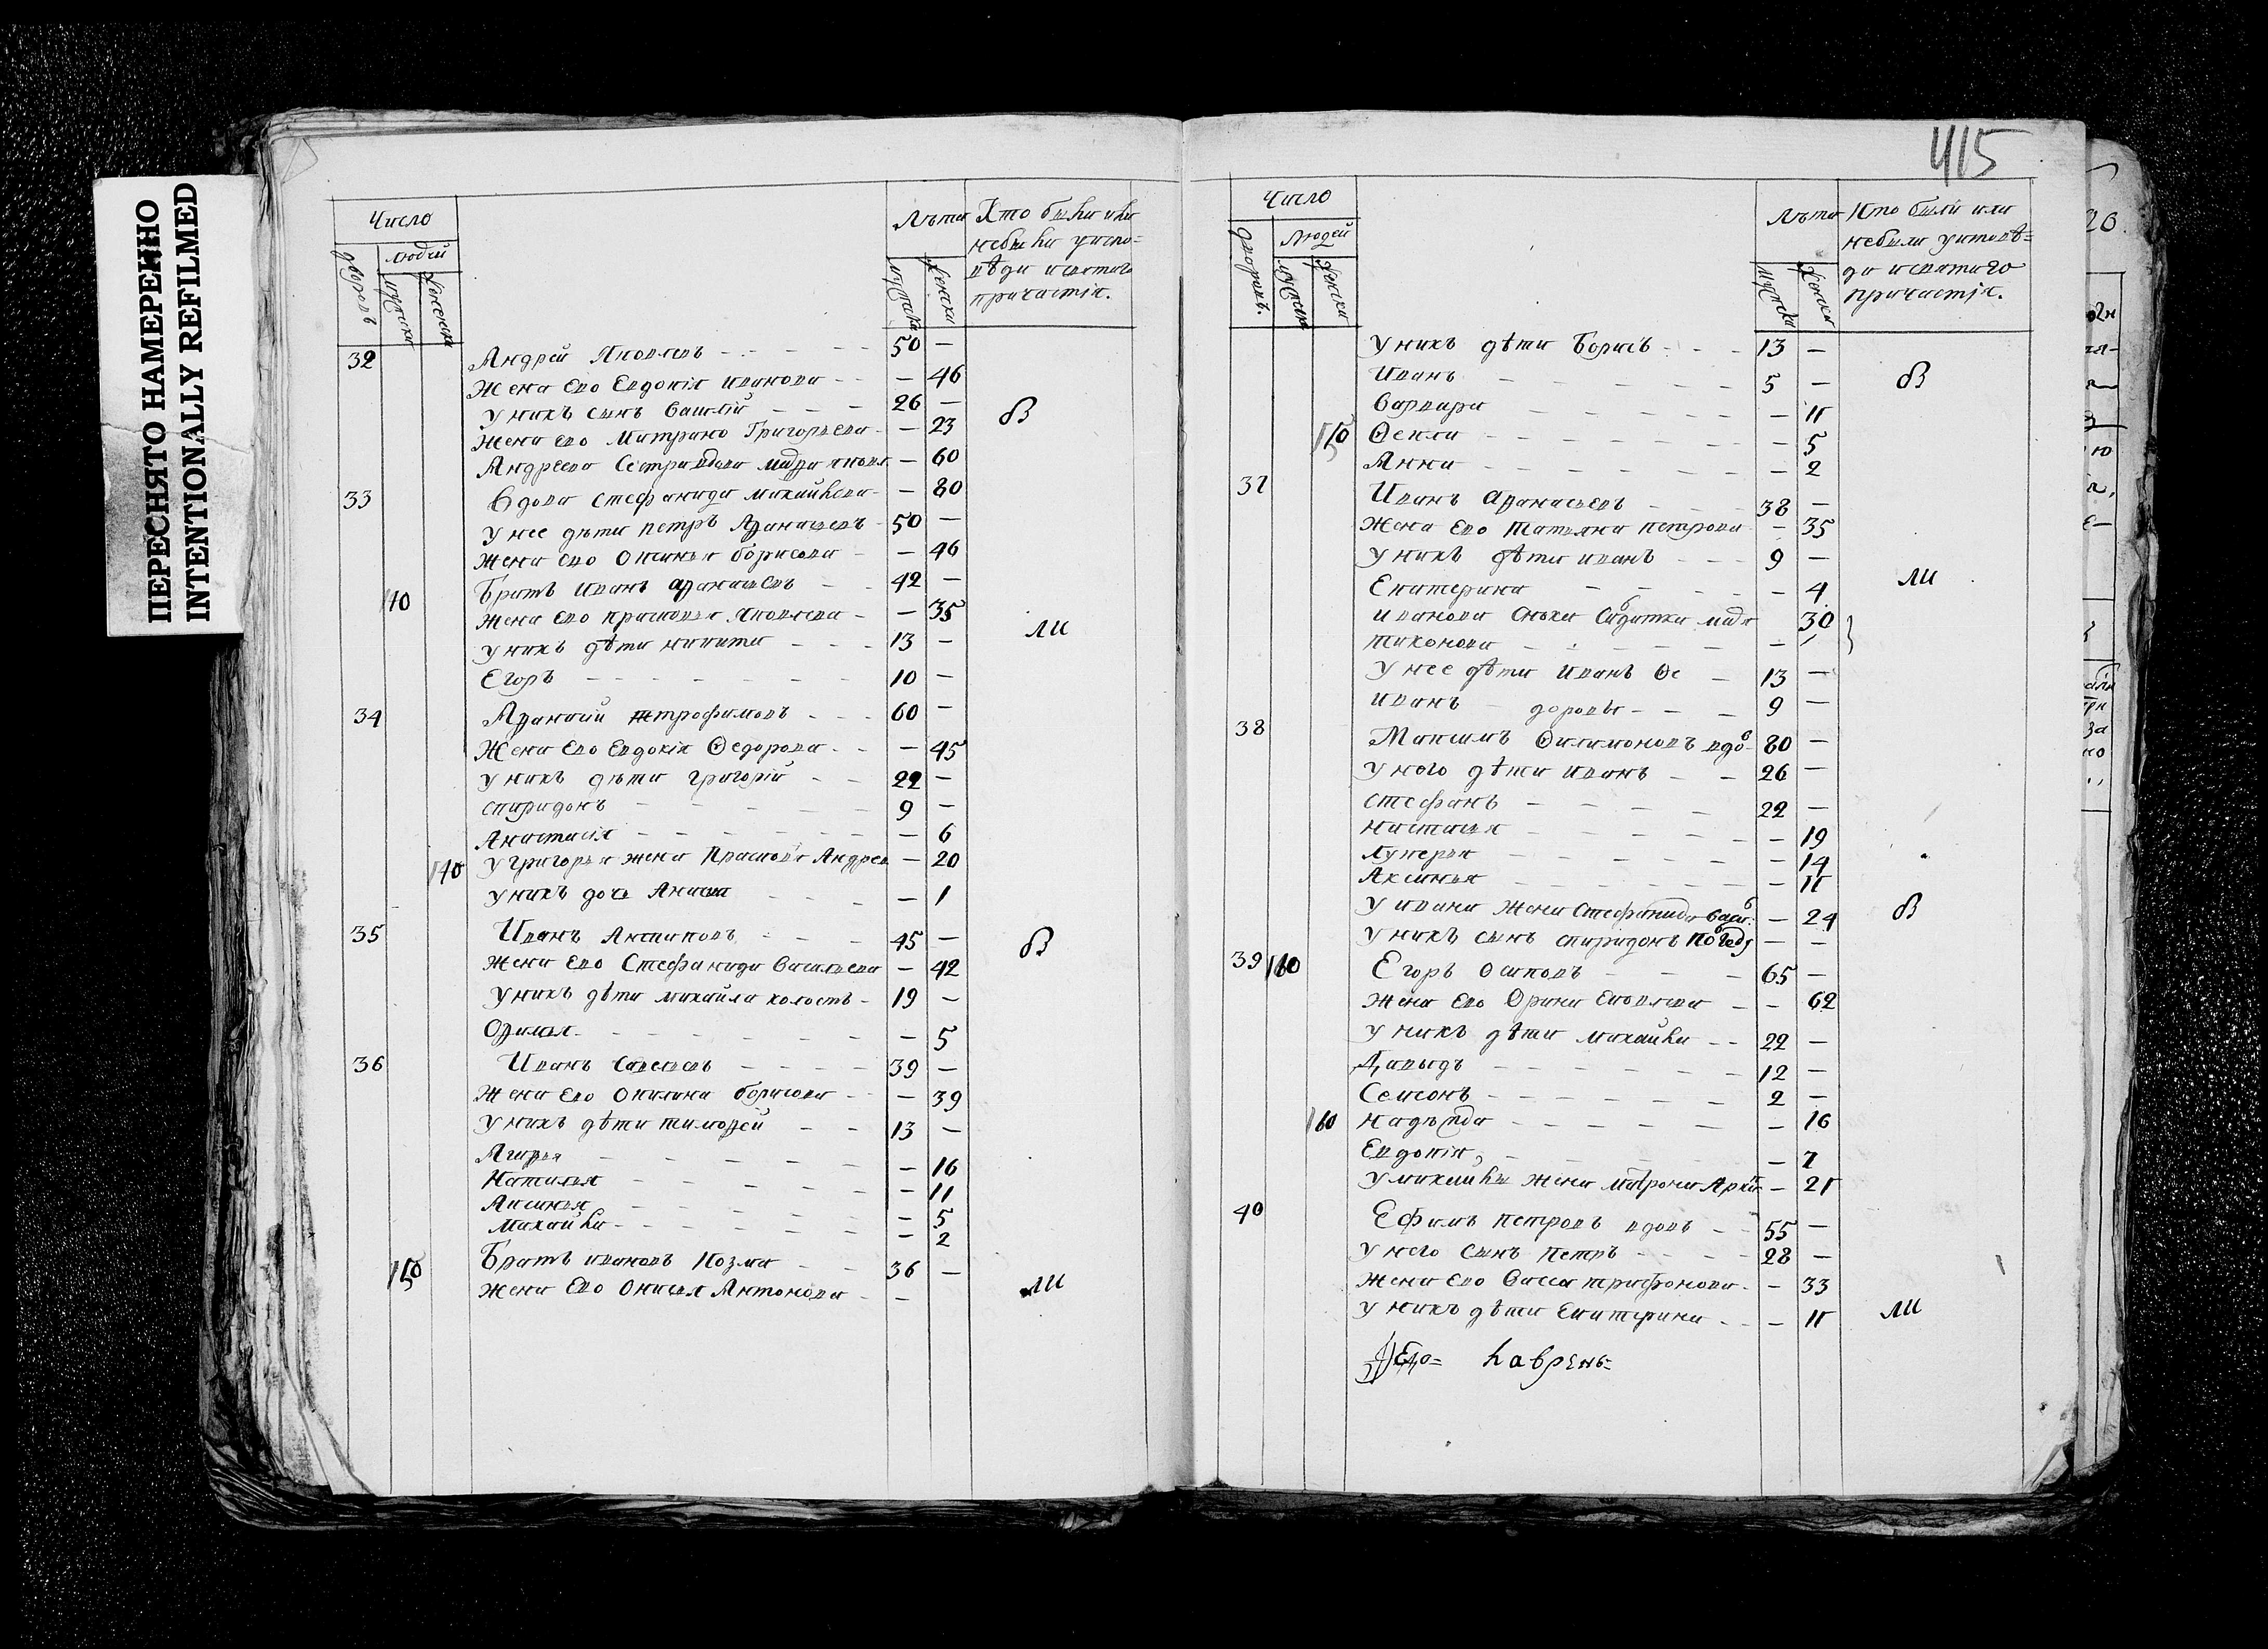 ПЕРЕСНЯТО НАМЕРЕННО
INTENTIONALLY REFILMED
Число
людей
дворовъ
мужска
женска
Лѣта
мужска
женска
Кто были или
небыли уиспо=
вѣди исвятаго
причастія.
32 Андрей Яковлевъ 50 —
Жена Ево Евдокія иванова — 46
у нихъ сынъ василій 26 —
Жена ево Матрана Григорьева — 23
В
Андреева Сестра вдова яковл — 60
33 Вдова стефанида михайлова — 80
у нее дѣти петръ Афанасьевъ 50 —
Жена ево Оксинья борисова — 46
Братъ иванъ афанасьевъ 42 —
110 Жена ево прасковья Яковлева — 35
у нихъ дѣти никита 13 —
ли
Егоръ 10 —
34 Афанасій 60 —
Жена Ево Евдокія Ѳедорова — 45
у нихъ дѣти григорій 22 —
спиридонъ 9 —
Анастасія — 6
140 у григорья жена Прасковья Андрев — 20
у нихъ дочь — 1
35 Иванъ Антиповъ 45 —
В
Жена Ево Стефанида васильева — 42
у нихъ дѣти михайла холостъ 19 —
Офимья — 5
36 Иванъ Савельевъ 39 —
Жена Ево борисова — 39
у нихъ дѣти тимофей 13 —
Агафья — 16
Наталья — 11
Аксинья — 5
михайла — 2
150 Братъ ивановъ Козма 36 —
Жена Ево Антонова —
ли
415
Число
Людей
дворовъ.
мужска
женска
Лѣта
Мужска
женска
Кто были или
небыли уисповѣ=
ди исвятаго
причастія.
у нихъ дѣти Борисъ 13 —
Иванъ 5 —
В
варвара — 11
150 Ѳекла — 5
Анна — 2
37 Иванъ афанасьевъ 38 —
Жена Ево Татьяна петрова — 35
у нихъ дѣти иванъ 9 —
Екатерина — 4
ли
иванова сноха 30
тихонова —
у нее дѣти Иванъ Ѳе 13 —
иванъ доровы 9 —
38 Максимъ Филимоновъ вдо 80 —
у него дѣти иванъ 26 —
стефанъ 22 —
настасья — 19
лукерья — 14
Аксинья — 11
у ивана жена Стефанида — 24
В
у нихъ сынъ спиридонъ — —
39 160 Егоръ осиповъ 65 —
Жена Ево Орина — 62
у нихъ дѣти михайла 22 —
Давыдъ 12 —
Семионъ 2 —
160 надѣжда — 16
Евдокія — 7
у михайлы жена матрона Архи — 21
40 Ефимъ петровъ вдовъ 55 —
у него сынъ петръ 28 —
Жена ево васса трифонова — 33
у нихъ дѣти Екатерина — 11
ли
лаврень=